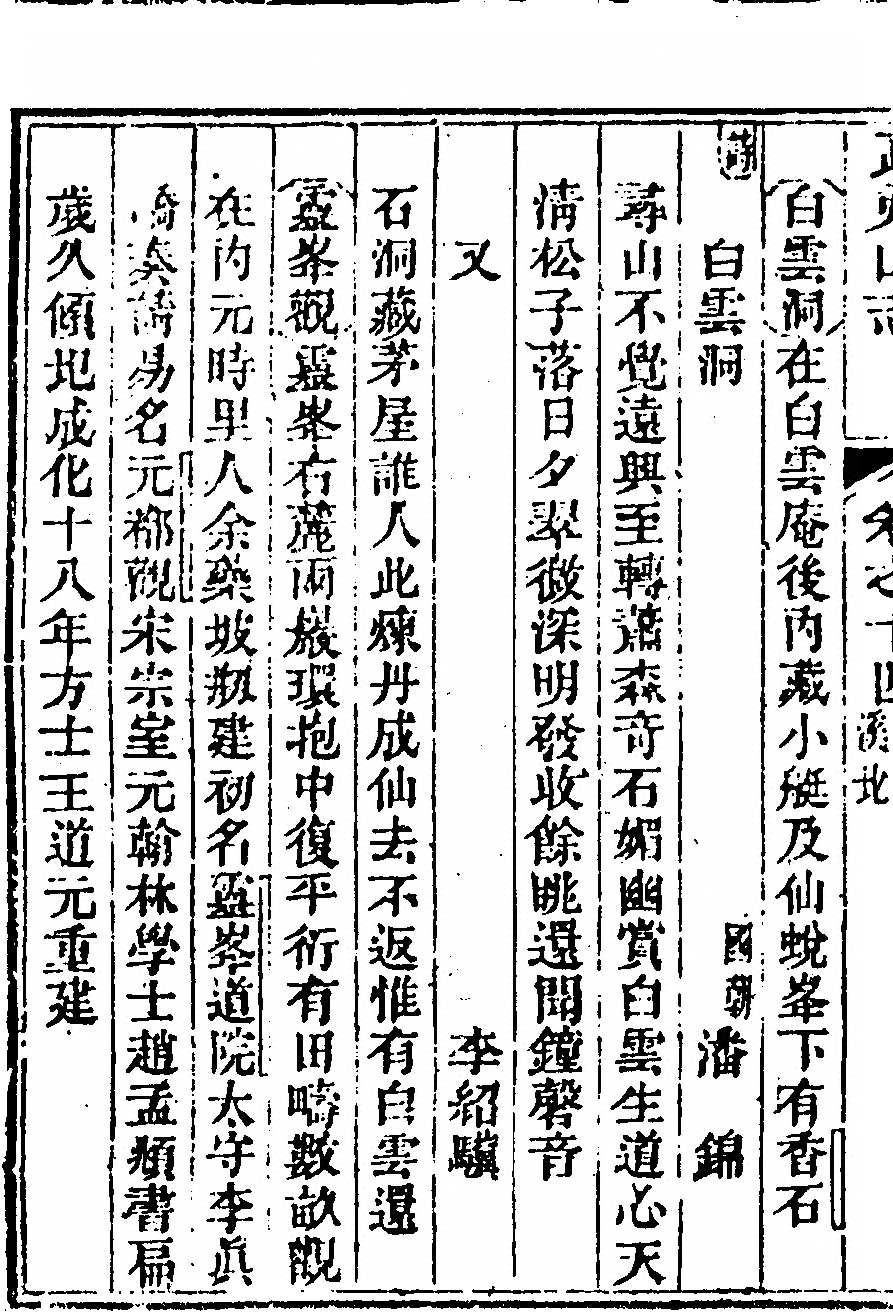 武夷山志 卷之十四 溪北
白雲洞在白雲庵後内藏小艇及仙蛻峯下有香石
詩 白雲洞 國朝 潘錦
尋山不覺遠興至轉蕭森奇石媚幽賞白雲生道心天
清松子落日夕翠微深明發收餘眺還聞鐘磬音
又 李紹騏
石洞藏茅屋誰人此煉丹成仙去不返惟有白雲還
靈峯觀靈峯右麓兩巖環抱中復平衍有田疇數畝觀
在内元時里人余藥坡剏建初名靈峯道院太守李眞
奏請易名元都觀宋宗室元翰林學士趙孟頫書扁
歲久傾圮成化十八年方士王道元重建